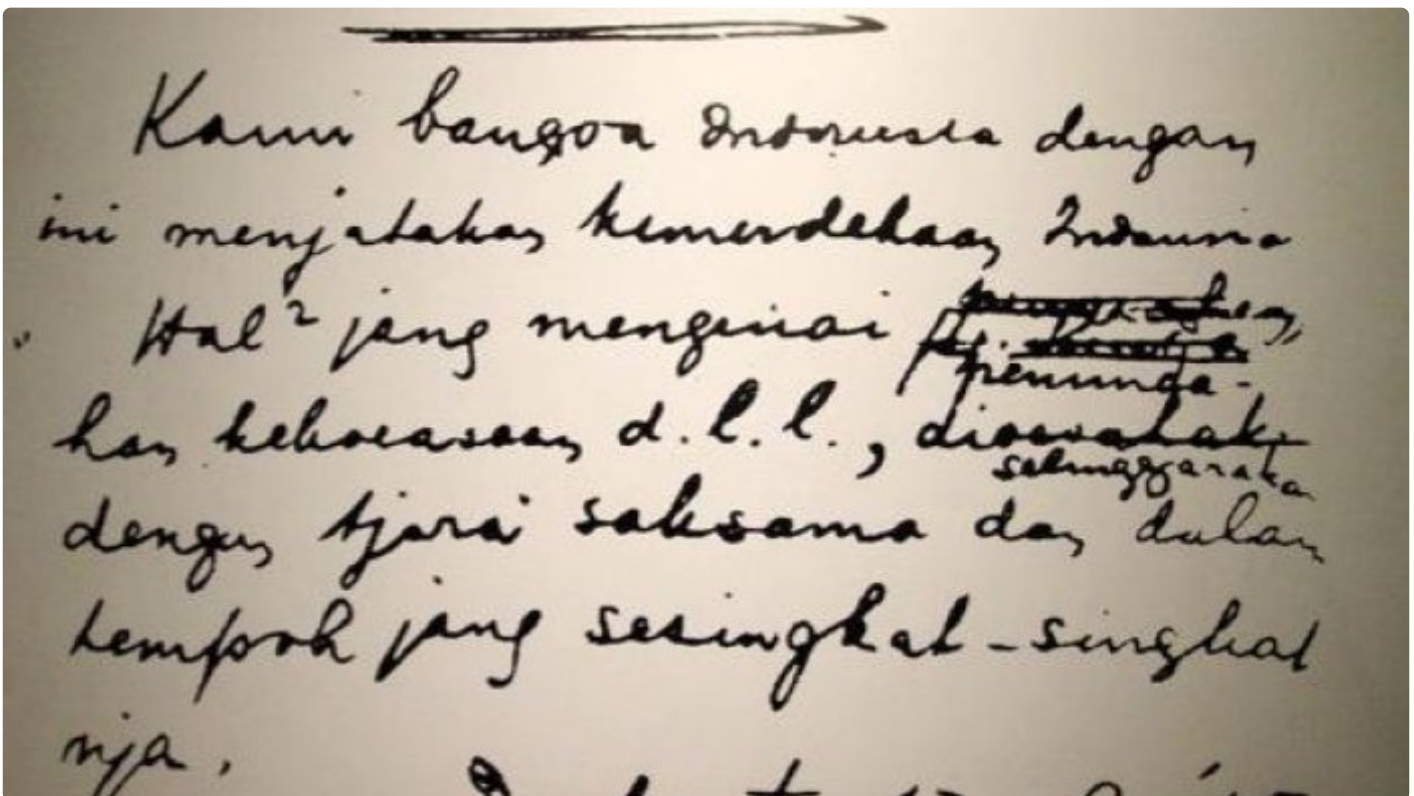 Kami bangsa Indonesia dengan
ini menjatakan kemerdekaan Indonesia
Hal² jang mengenai
peminda-
han kekoeasaan d.l.l.,
diselenggarakan
dengan tjara saksama dan dalam
tempoh jang sesingkat-singkat
nja.